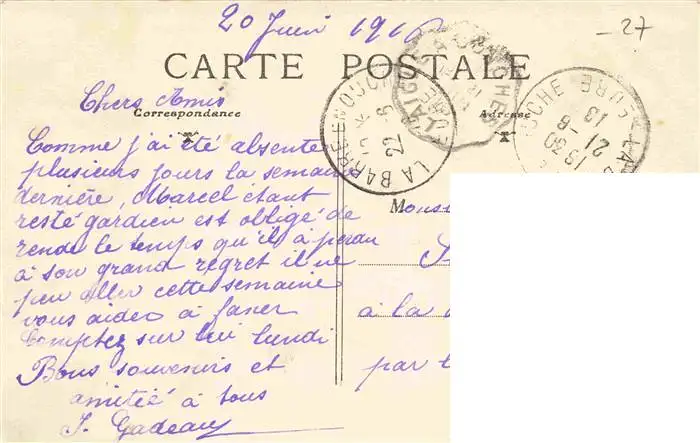 20 Juin 1916
- 27
CARTE POSTALE
Chers Amis
Correspondance
Adresse
Comme j'ai été absente
plusieurs jours la semain
dernière, Marcel étant
resté gardien est obligé de
rendre le temps qu'il a perdu
à son grand regret il ne
peu aller cette semaine
vous aider à faner
Comptez sur lui lundi
Bons souvenirs et
amitié à tous
J. Gadeau
LA BARRE EN OUCHE
22 -6
EURE
21 -6
13
1530
M
Mons
à la
par